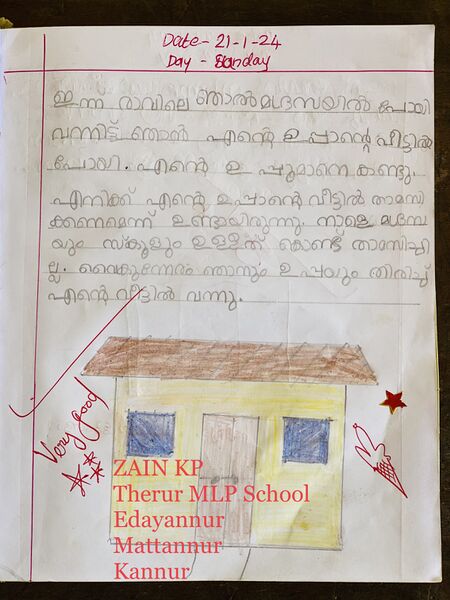 Date- 21-1-24
Day - Sunday
ഇന്ന് രാവിലെ ഞാൽ മദ്രസയിൽ പോയി
വന്നിട്ട് ഞാൻ എന്റെ ഉപ്പാന്റെ വീട്ടിൽ
പോയി. എന്റെ ഉപ്പുമാനെ കണ്ടു.
എനിക്ക് എന്റെ ഉപ്പാന്റെ വീട്ടിൽ താമസി
ക്കണമെന്ന് ഉണ്ടായിരുന്നു. നാളെ
യും സ്കൂളും ഉള്ളത് കൊണ്ട് താമസിച്ചി
ല്ല. വൈകുന്നേരം ഞാനും ഉപ്പയും തിരിച്ച്
എന്റെ വീട്ടിൽ വന്നു.
Very good
ZAIN KP
Therur MLP School
Edayannur
Mattannur
Kannur